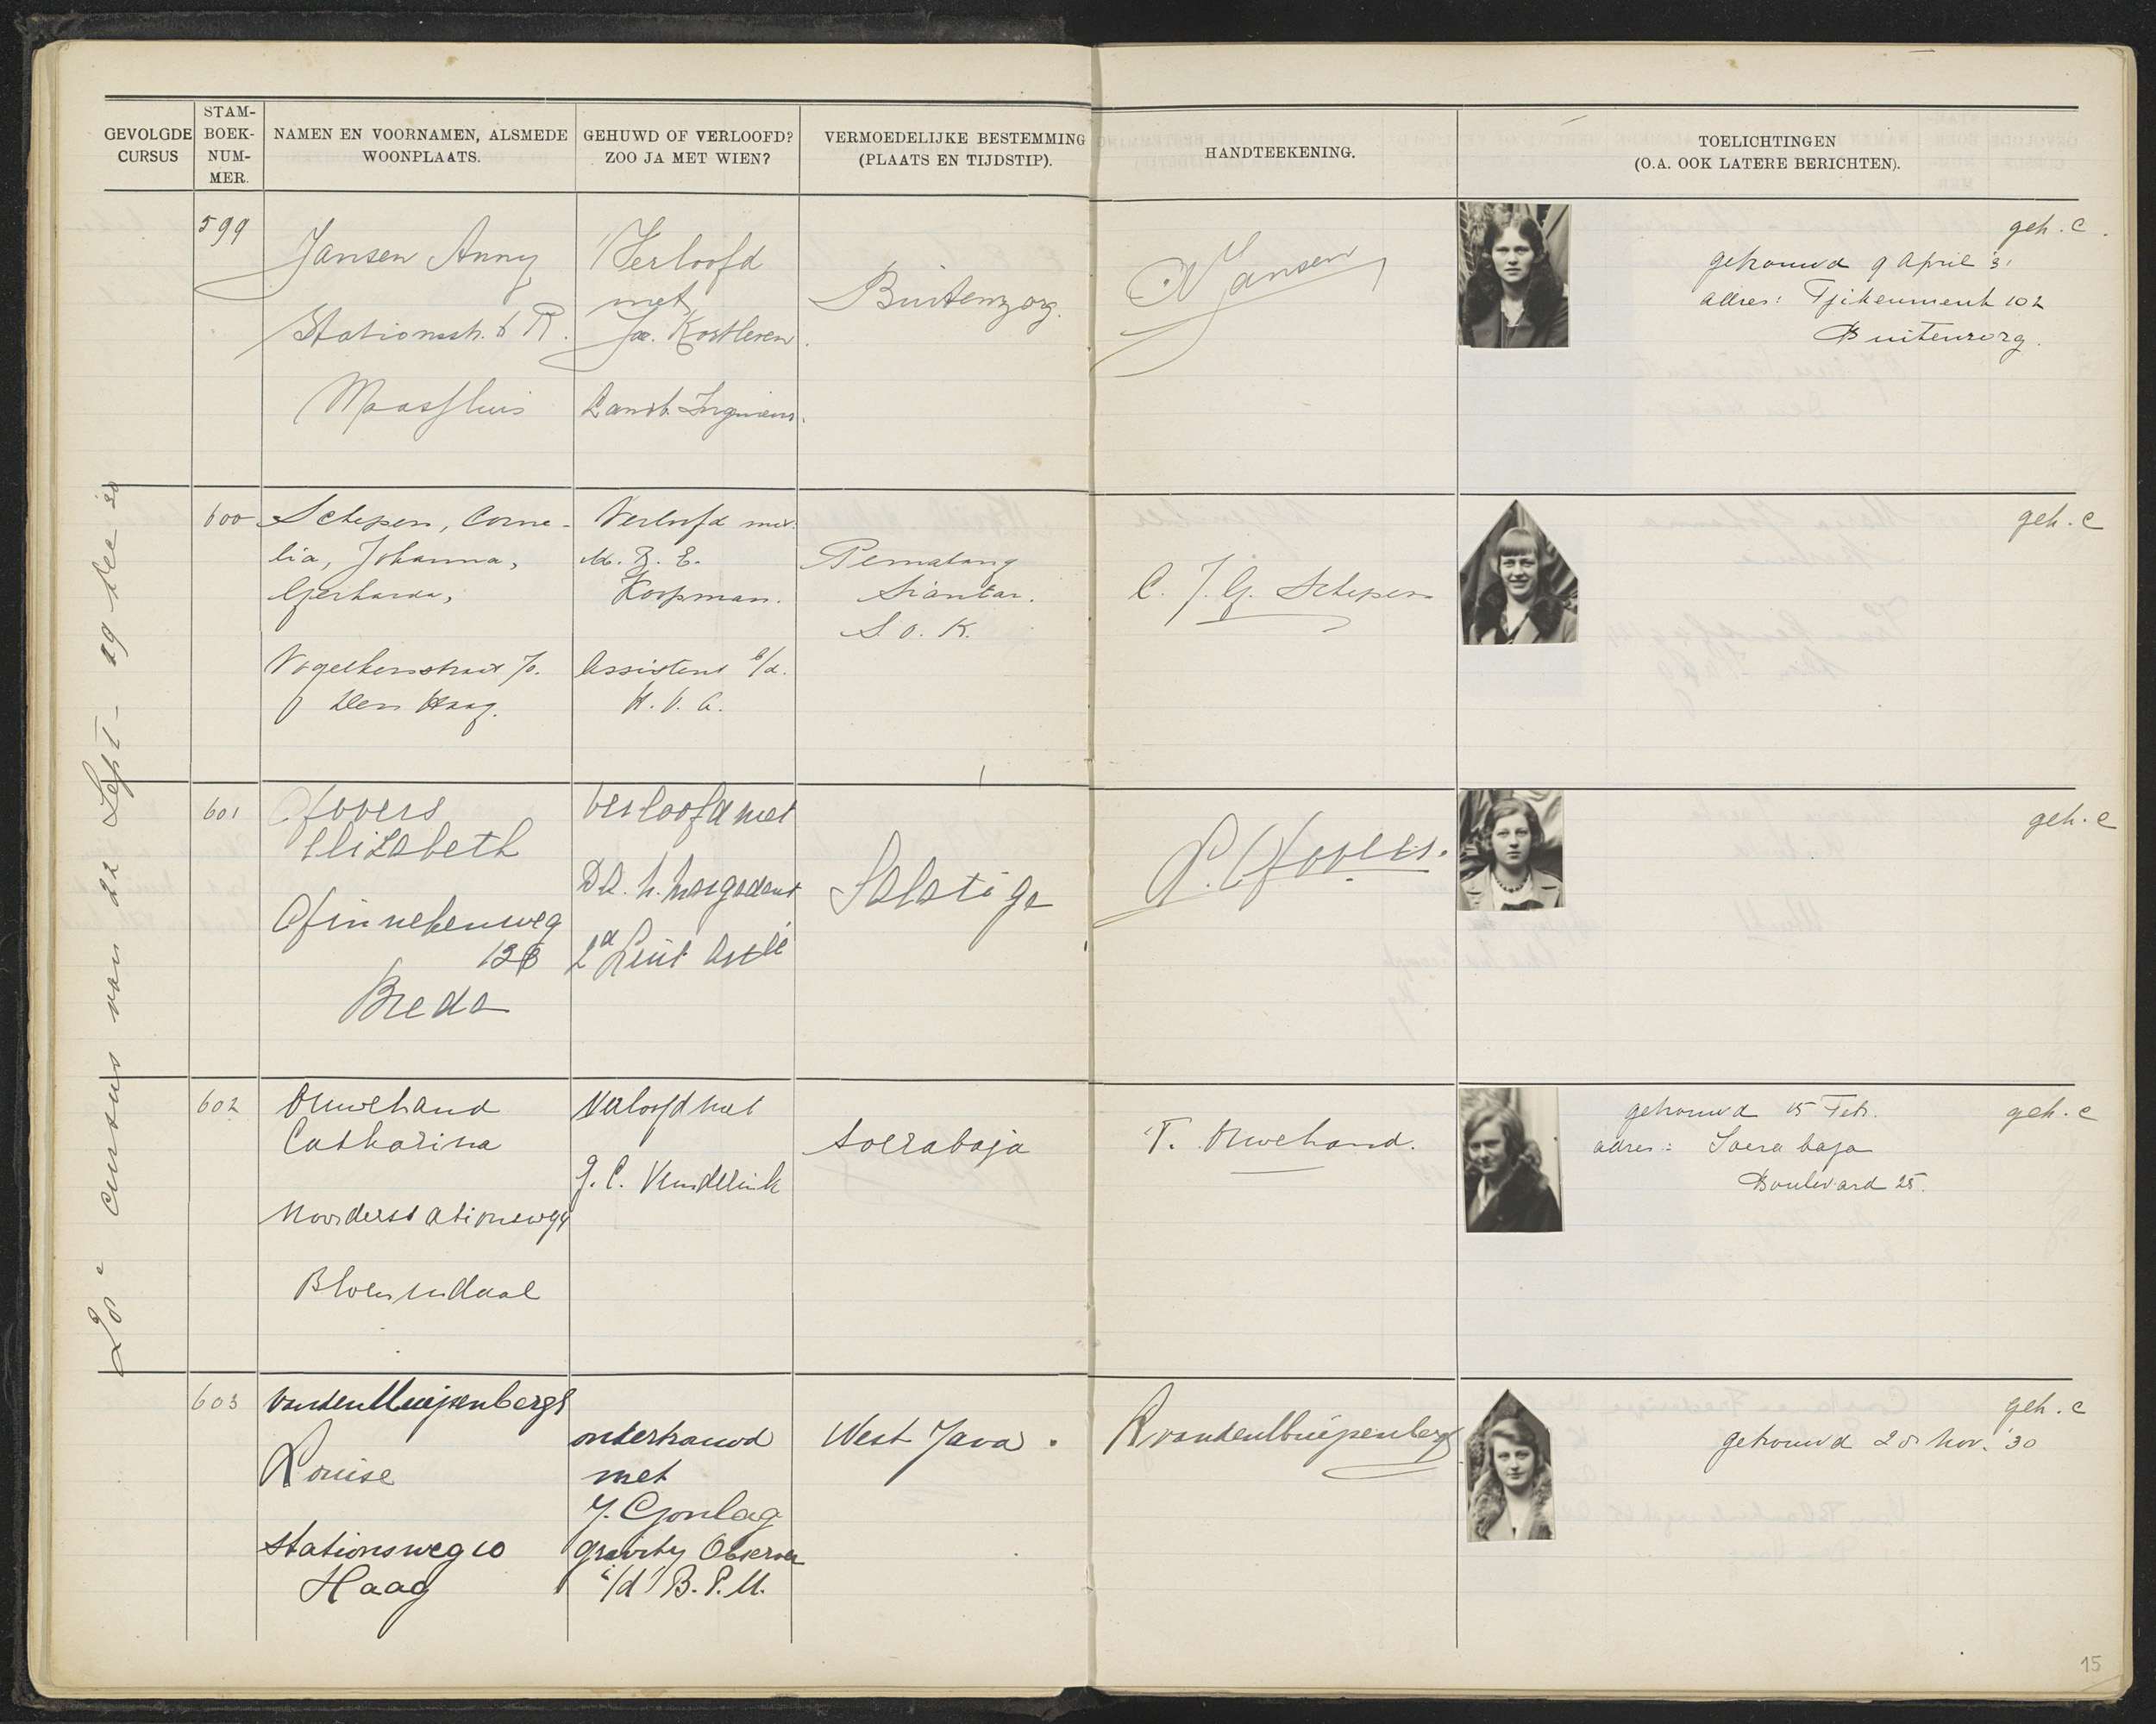 GEVOLGDE CURSUS
STAM-BOEK-NUM-MER.
NAMEN EN VOORNAMEN, ALSMEDE WOONPLAATS.
GEHUWD OF VERLOOFD? ZOO JA MET WIEN?
VERMOEDELIJKE BESTEMMING (PLAATS EN TIJDSTIP).
HANDTEEKENING.
TOELICHTINGEN
(O.A. OOK LATERE BERICHTEN).
cursus van 22 Sept - 29 Dec '30
599
Jansen Anny
Stationsstr.
Maassluis
Verloofd
met
Buitenzorg.
Jansen
geh. C.
getrouwd 9 April
adres: Tjikeumeuh 102
Buitenzorg.
600
Schepers, Corne-
lia, Johanna,
Gerharda,
Den Haag.
Verloofd met
Koopman.
Assistent b/d.
H.V.A.
Pematang
Siantar.
S.O.K.
C. J. G. Schepers
geh. C
601
Govers
Elizabeth
Ginnekenweg
Breda
Verloofd met
Salatiga
Govers.
geh. C
602
Ouwehand
Catharina
Noorderstationsweg
Bloemendaal
Verloofd met
Soerabaja
T. Ouwehand.
getrouwd 15 Feb.
adres: Soerabaja
Boulevard 25.
geh. C
603
van den Muijsenbergh
Louise
Stationsweg 10
Haag
ondertrouwd
met
Gravity Observer
b/d B.P.M.
West Java.
geh. C
getrouwd 20 Nov. '30
15